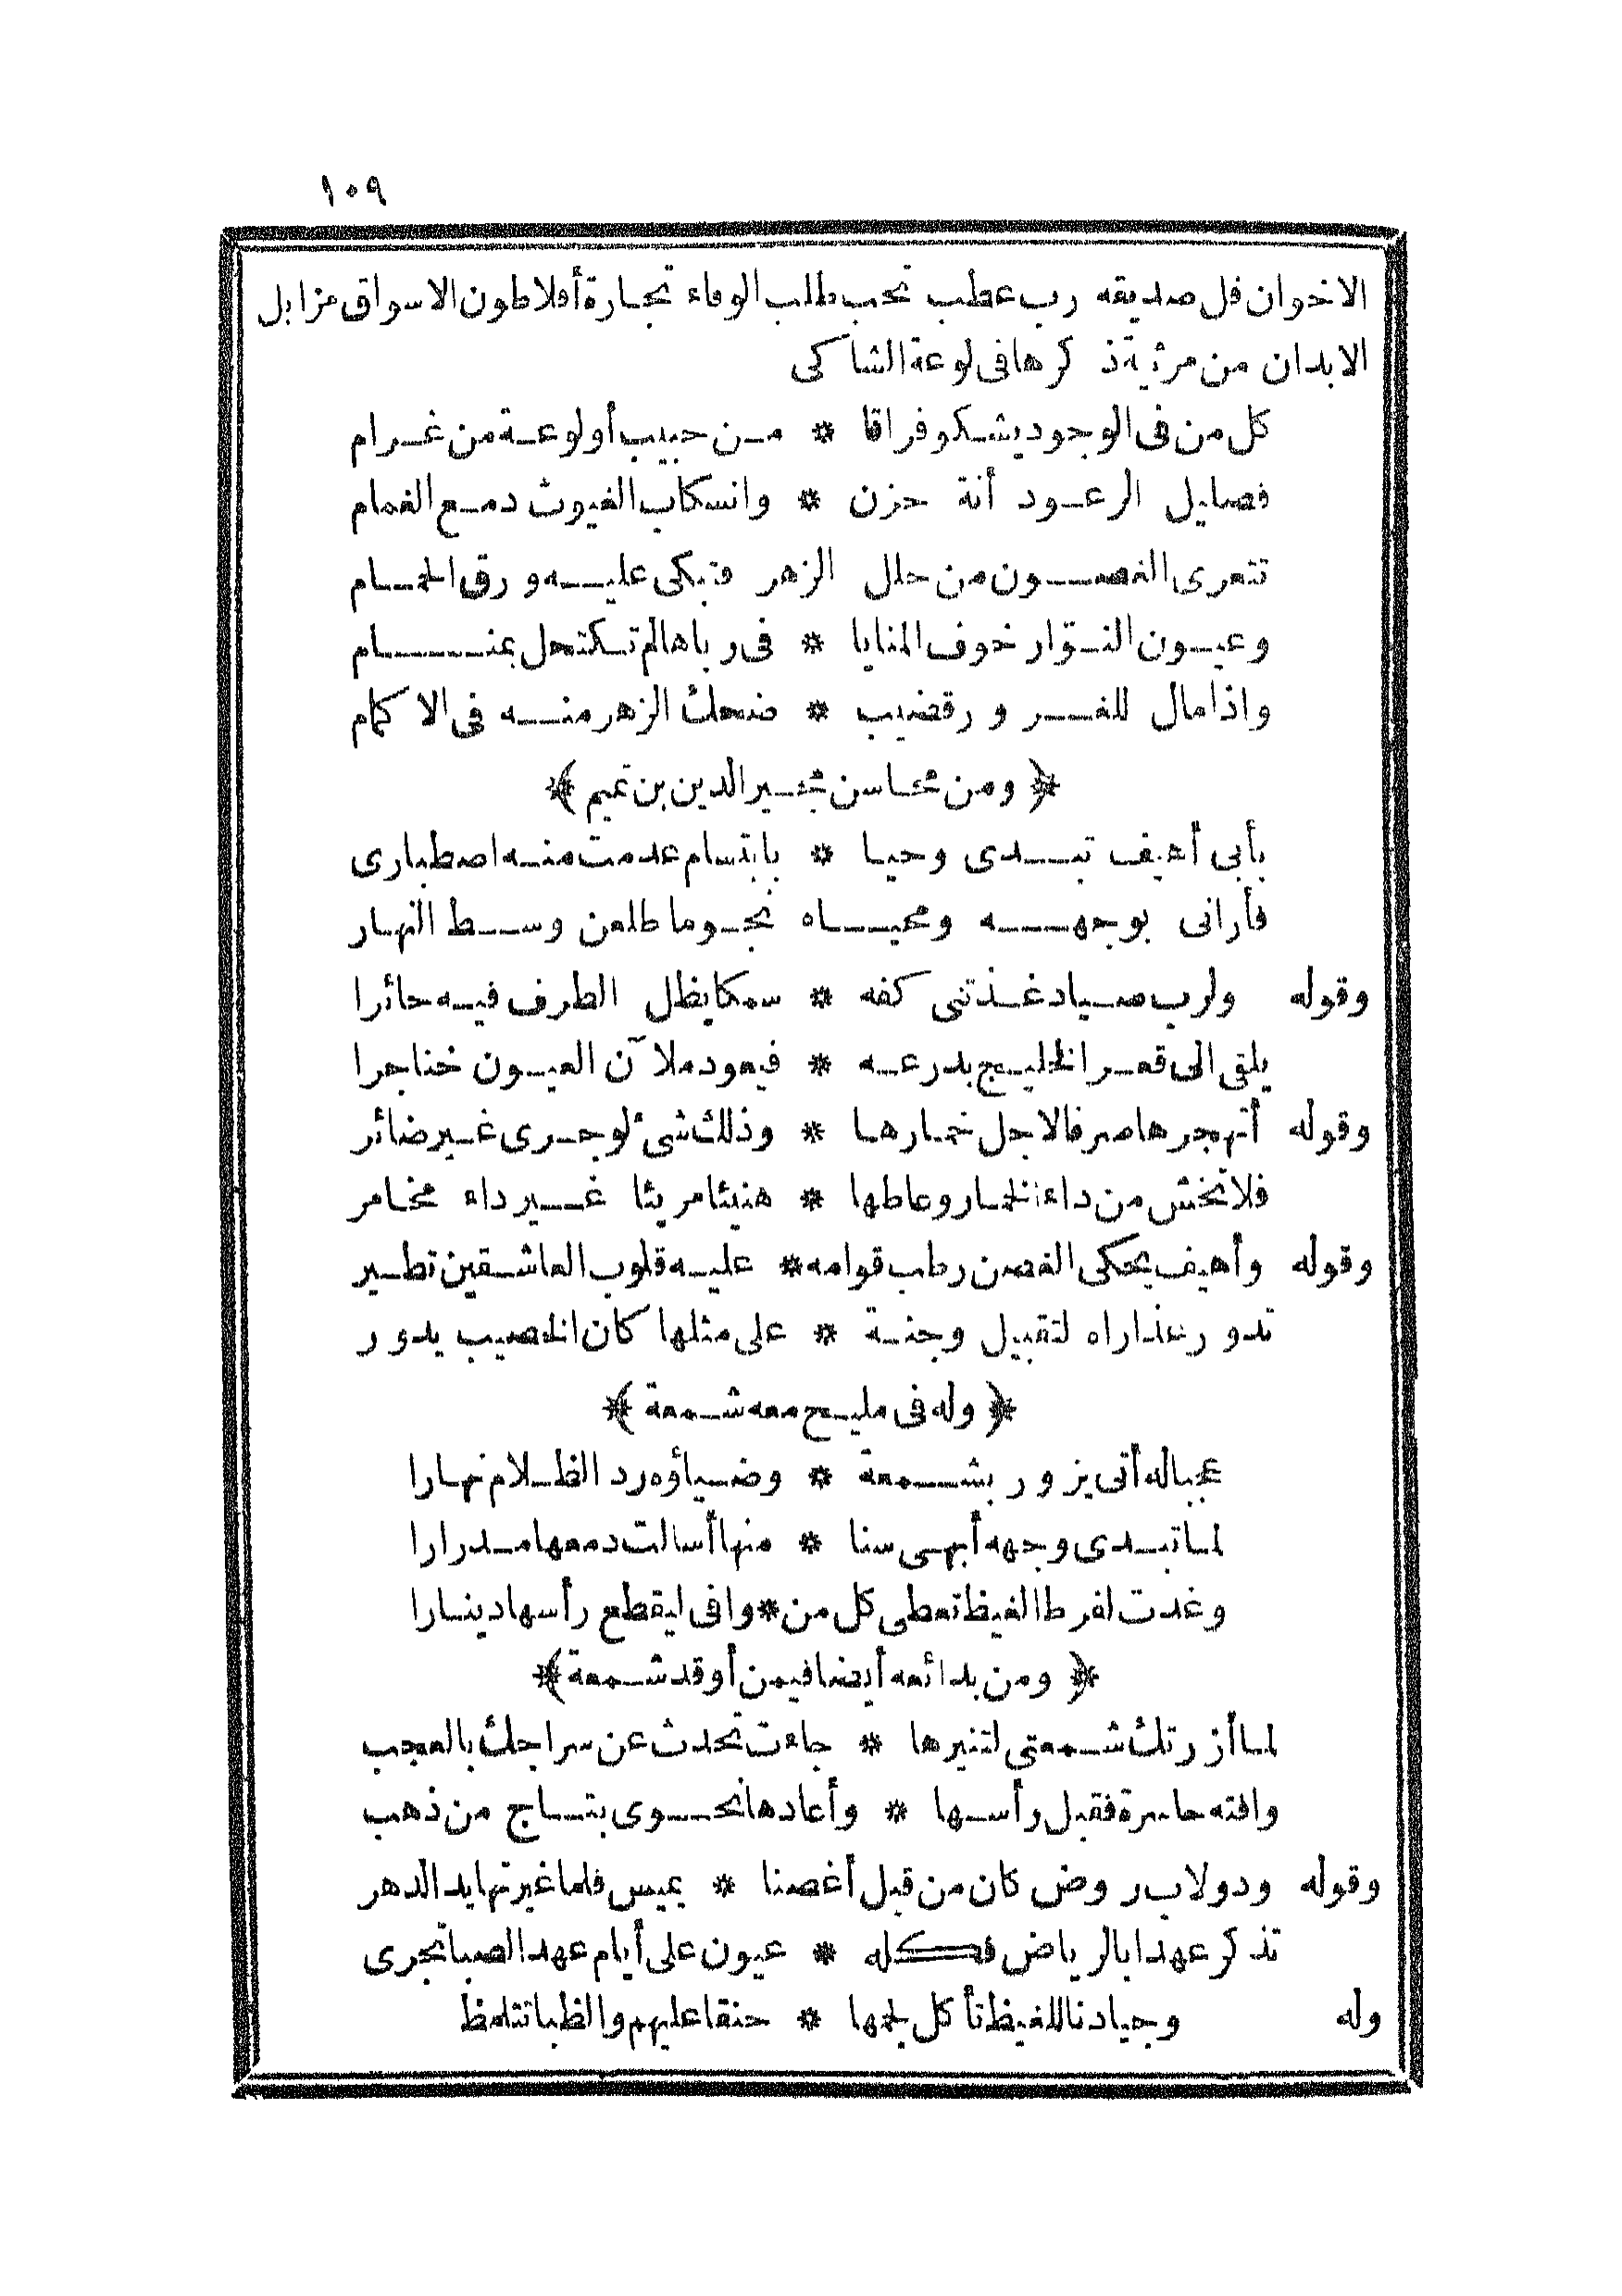 ١٠٩
الاخوان فل صديقه رب عطب تحب طلب الوفاء تجارة أفلاطون الاسواق مزابل
الابدان من مرثية ذكرها فى لوعة الشاكى
كل من فى الوجود يشكو فراقا * من حبيب أو لوعة من غرام
فصليل الرعود أنة حزن * وانسكاب الغيوث دمع الغمام
تتعرى الغصون من حلل الزهر فتبكى عليه ورق الحمام
وعيون النوّار خوف المنايا * فى رباها لم تكتحل بمنام
واذا مال للغرور قضيب * ضحك الزهر منه فى الاكمام
﴿ ومن محاسن مجير الدين بن تميم ﴾
بأبى أهيف تبدى وحيا * بابتسام عدمت منه اصطبارى
فأرانى بوجهه ومحياه نجوما طلعن وسط النهار
وقوله ولرب صياد غذتنى كفه * سمكا يظل الطرف فيه حائرا
يلقى الى قعر الخليج بدرعه * فيعود ملآن العيون خناجرا
وقوله أتهجرها صرفا لاجل خمارها * وذلك شئ لو جرى غير ضائر
فلا تخش من داء الخمار وعاطها * هنيئا مريئا غير داء مخامر
وقوله وأهيف يحكى الغصن رطب قوامه * عليه قلوب العاشقين تطير
تدور عذاراه لتقبيل وجنة * على مثلها كان الخصيب يدور
﴿ وله فى مليح معه شمعة ﴾
عجبا له أتى يزور بشمعة * وضياؤه رد الظلام نهارا
لما تبدى وجهه أبهى سنا * منها أسالت دمعها مدرارا
وغدت لفرط الغيظ تعطى كل من * وافى ليقطع رأسها دينارا
﴿ ومن بدائعه أيضا فيمن أوقد شمعة ﴾
لما أزرتك شمعتى لتنيرها * جاءت تحدث عن سراجك بالعجب
وافته حاسرة فقبل رأسها * وأعادها نحوى بتاج من ذهب
وقوله ودولاب روض كان من قبل أغصنا * يميس فلما غيرتها يد الدهر
تذكر عهدا بالرياض فكله * عيون على أيام عهد الصبا تجرى
وله وجيادنا للغيظ تأكل لجمها * حنقا عليهم والظبا تتلمظ